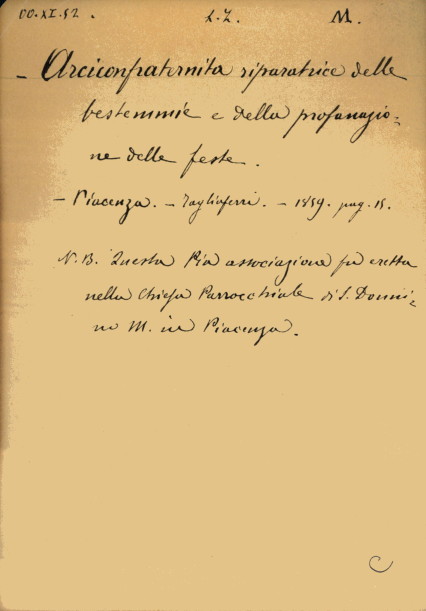 OO.XI.52. L.Z. M.
- Arciconfraternita riparatrice delle
bestemmie e della profanazio:
ne delle feste.
- Piacenza. - Tagliaferri. - 1859. pag. 15.
N.B. Questa Pia associazione fu eretta
nella Chiesa Parrocchiale di S. Donni:
no M. in Piacenza.
C